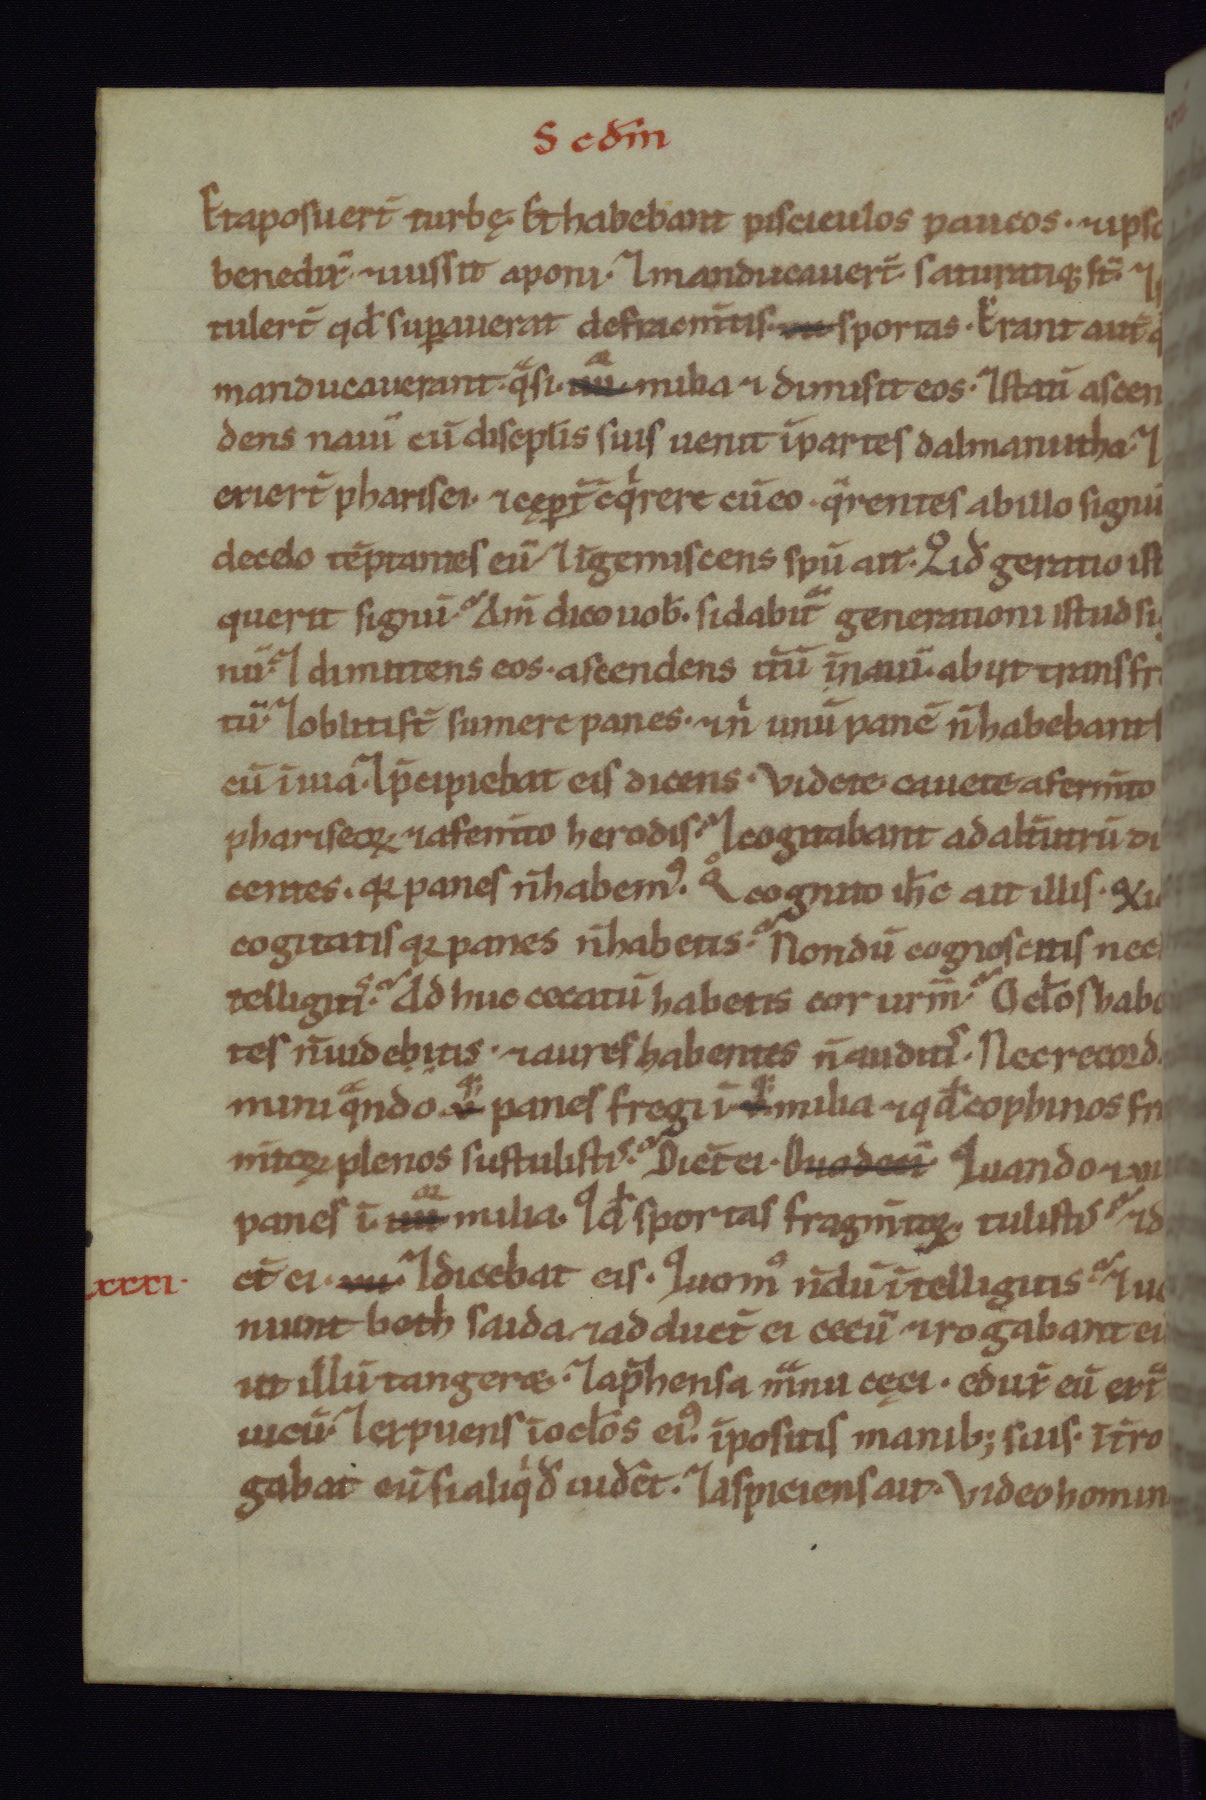 S cđm
Et aposuer̄t turbę. Et habebant pisciculos paucos. ⁊ ipso
benedix̄. ⁊ iussit aponi. ⁊ manducauer̄t. saturatiq; st̄. ⁊
tuler̄t qđ suꝑauerat de fracm̄tis. sportas. Erant aut̄
manducauerant. qᵃsi. milia ⁊ dimisit eos. ⁊ statī ascen
dens nauī cū discipl̄is suis uenit ī partes dalmanutha. ⁊
exier̄t pharisei. ⁊ cęꝑt̄ c̄qⁱrere cū eo. q̄rentes ab illo signū
de celo tēptantes eū. ⁊ īgemiscens spū ait. Qⁱd ger̄atio ist
querit signū. Am̄ dico uob̄. si dabit᷑ generationi isti
nū. ⁊ dimittens eos. ascendens it̄ū ī nauī. abiit trans fr
tū. ⁊ obliti st̄ sumere panes. ⁊ nⁱ unū panē n̄ habebant
cū ī naui. ⁊ p̄cipiebat eis dicens. Videte. cauete a ferm̄to
phariseoꝝ ⁊ a ferm̄to herodis. ⁊ cogitabant ad alt̄utrū di
centes. qꝛ panes n̄ habemꝰ. Qº cognito ih̄c ait illis. Qⁱ
cogitatis qꝛ panes n̄ habetis. Nondū cognoscitis nec
telligitis. Adhuc cecatū habetis cor ur̄m. Ocl̄os habe
tes n̄ uidebitis. ⁊ aures habentes n̄ auditis. Nec record
mini qᵃndo panes fregi ī milia ⁊ qđ cophinos fra
m̄toꝝ plenos sustulistis. Dict̄ ei. Duodecī. Quando ⁊ uii
panes ī. iiii milia. Qđ sportas fragm̄toꝝ tulistis ⁊ d
ct̄ ei. uii. ⁊ dicebat eis. Quomº n̄dū ītelligitis. ⁊ ue
xxxi.
niunt beth saida ⁊ adduct̄ ei cecū ⁊ rogabant eū
ut illū tangeret. ⁊ ap̄hensa mᵃnu cęci. eduxͭ eū ext̄
uicū. ⁊ expuens ī ocl̄os eiꝰ. īpositis manib; suis. īt̄ro
gabat eū si aliqⁱd uider̄et. ⁊ aspiciens ait. Video homin